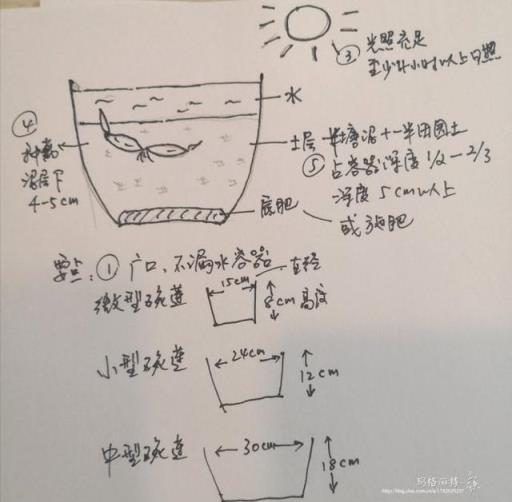 ③ 光照充足
至少4小时以上日照
水
④
种藕
泥层下
4-5cm
土层 半塘泥+一半田园土
⑤ 占容器深度1/2-2/3
深度5cm以上
底肥
或施肥
要点: ① 广口、不漏水容器
直径
15cm
微型碗莲
8cm 高度
小型碗莲
24cm
12cm
中型碗莲
30cm
18cm
玛格丽特一族